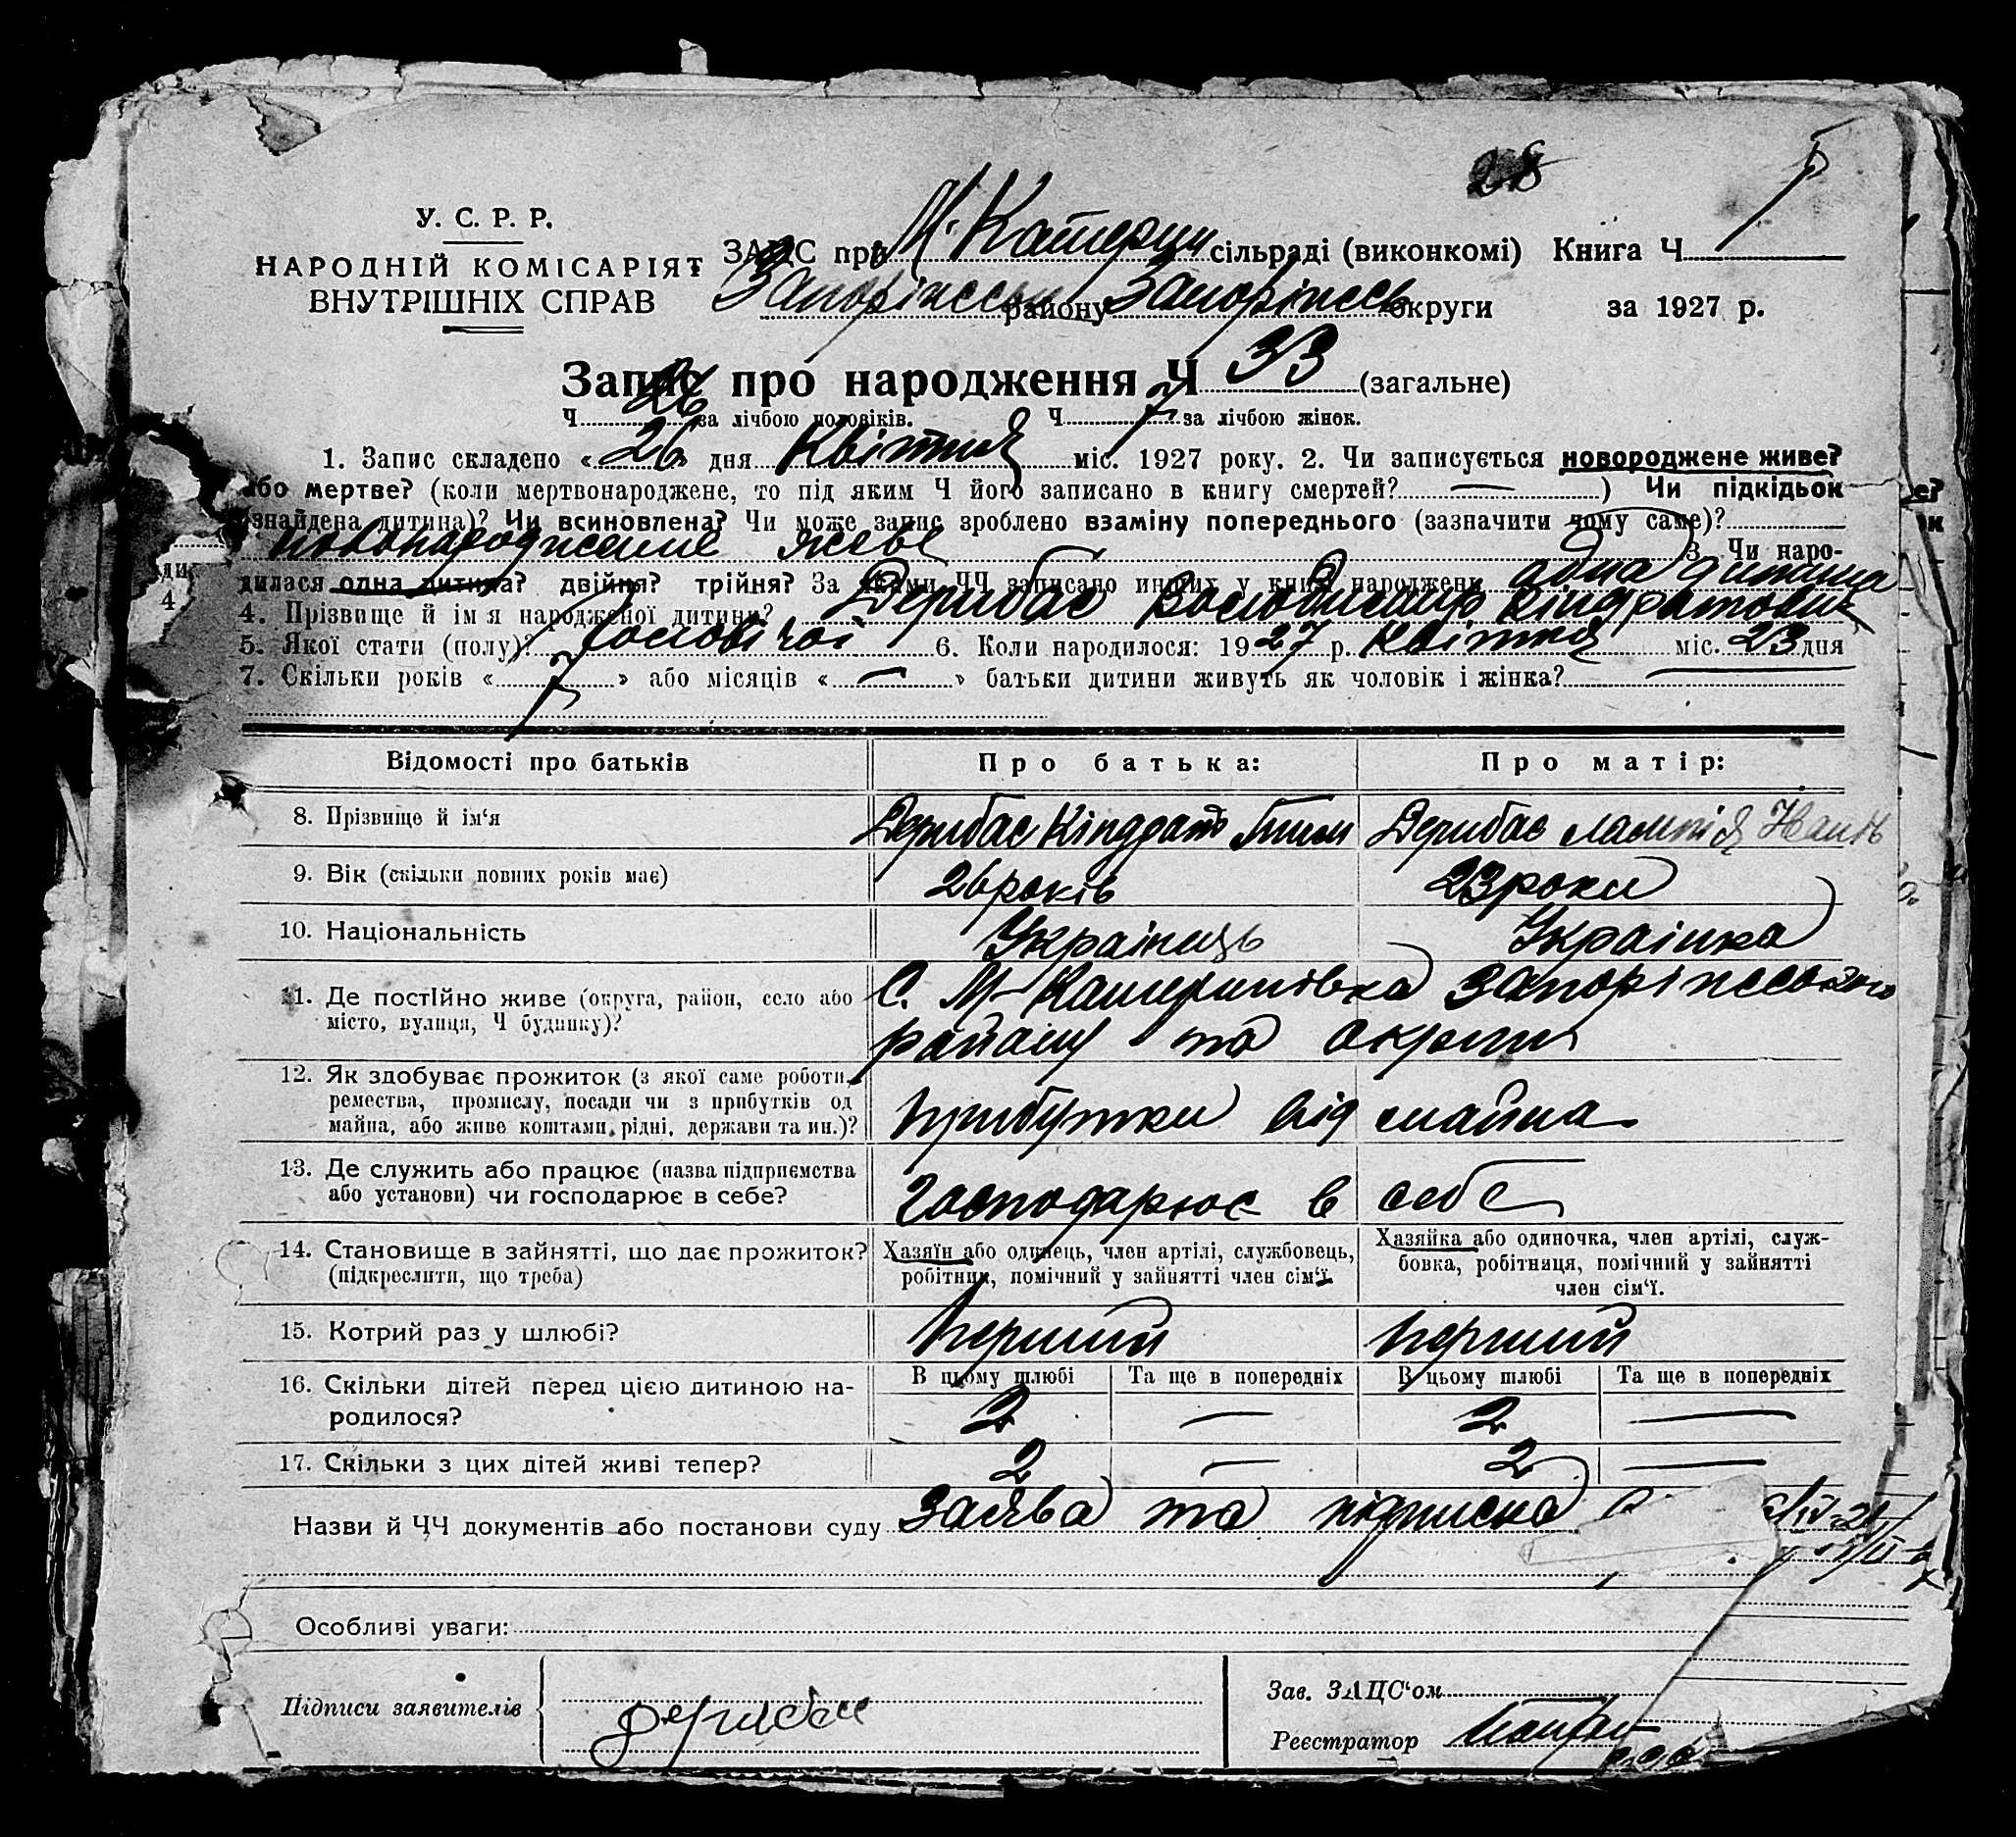 28
У. С. Р. Р.
НАРОДНІЙ КОМІСАРІЯТ
ВНУТРІШНІХ СПРАВ
ЗАЦС при М-Катерин сільраді (виконкомі) Книга Ч
району округи за 1927 р.
Запис про народження Ч 33 (загальне)
Ч 26 за лічбою чоловіків. Ч 7 за лічбою жінок.
1. Запис складено «26» дня Квітня міс. 1927 року. 2. Чи записується новороджене живе?
або мертве? (коли мертвонароджене, то під яким Ч його записано в книгу смертей? — ) Чи підкідьок
(знайдена дитина)? Чи всиновлена? Чи може запис зроблено взаміну попереднього (зазначити чому саме)?
живе 3. Чи наро-
дилася одна дитина? двійня? трійня? За якими ЧЧ записано инших у книзі народжени одна дитина
4. Прізвище й ім'я народженої дитини? Дерибас Володимир Кіндратович
5. Якої стати (полу)? Чоловічої 6. Коли народилося: 1927 р. квітня міс. 23 дня
7. Скільки років «7» або місяців « — » батьки дитини живуть як чоловік і жінка? —
Відомості про батьків Про батька: Про матір:
8. Прізвище й ім'я Дерибас Кіндрат Тим Дерибас
9. Вік (скільки повних років має) 26 років 23 роки
10. Національність Українець Українка
11. Де постійно живе (округа, район, село або С. М-Катеринівка Запоріжського
місто, вулиця, Ч будинку)? району та округи
12. Як здобуває прожиток (з якої саме роботи,
ремества, промислу, посади чи з прибутків од прибутки від майна
майна, або живе коштами рідні, держави та ин.)?
13. Де служить або працює (назва підприємства
або установи) чи господарює в себе? господарює в себе
14. Становище в зайнятті, що дає прожиток? Хазяїн або одинець, член артілі, службовець, Хазяйка або одиночка, член артілі, служ-
(підкреслити, що треба) робітник, помічний у зайнятті член сім'ї. бовка, робітниця, помічний у зайнятті
член сім'ї.
15. Котрий раз у шлюбі? перший перший
16. Скільки дітей перед цією дитиною на- В цьому шлюбі Та ще в попередніх В цьому шлюбі Та ще в попередніх
родилося? 2 — 2 —
17. Скільки з цих дітей живі тепер? 2 — 2 —
Назви й ЧЧ документів або постанови суду заява та підписка
Особливі уваги:
Підписи заявителів Дерибас
Зав. ЗАЦС'ом
Реєстратор